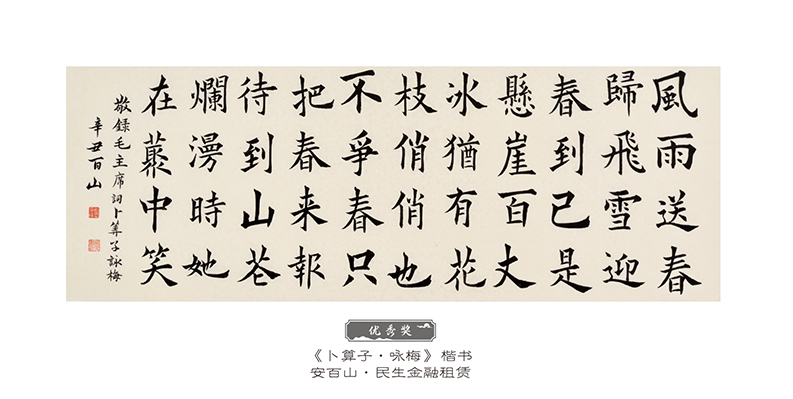 風雨送春
歸飛雪迎
春到已是
懸崖百丈
冰猶有花
枝俏俏也
不爭春只
把春来報
待到山芲
爛漫時她
在藂中笑
敬録毛主席詞卜筭子詠梅
辛丑百山
优秀奖
《卜算子·咏梅》楷书
安百山·民生金融租赁